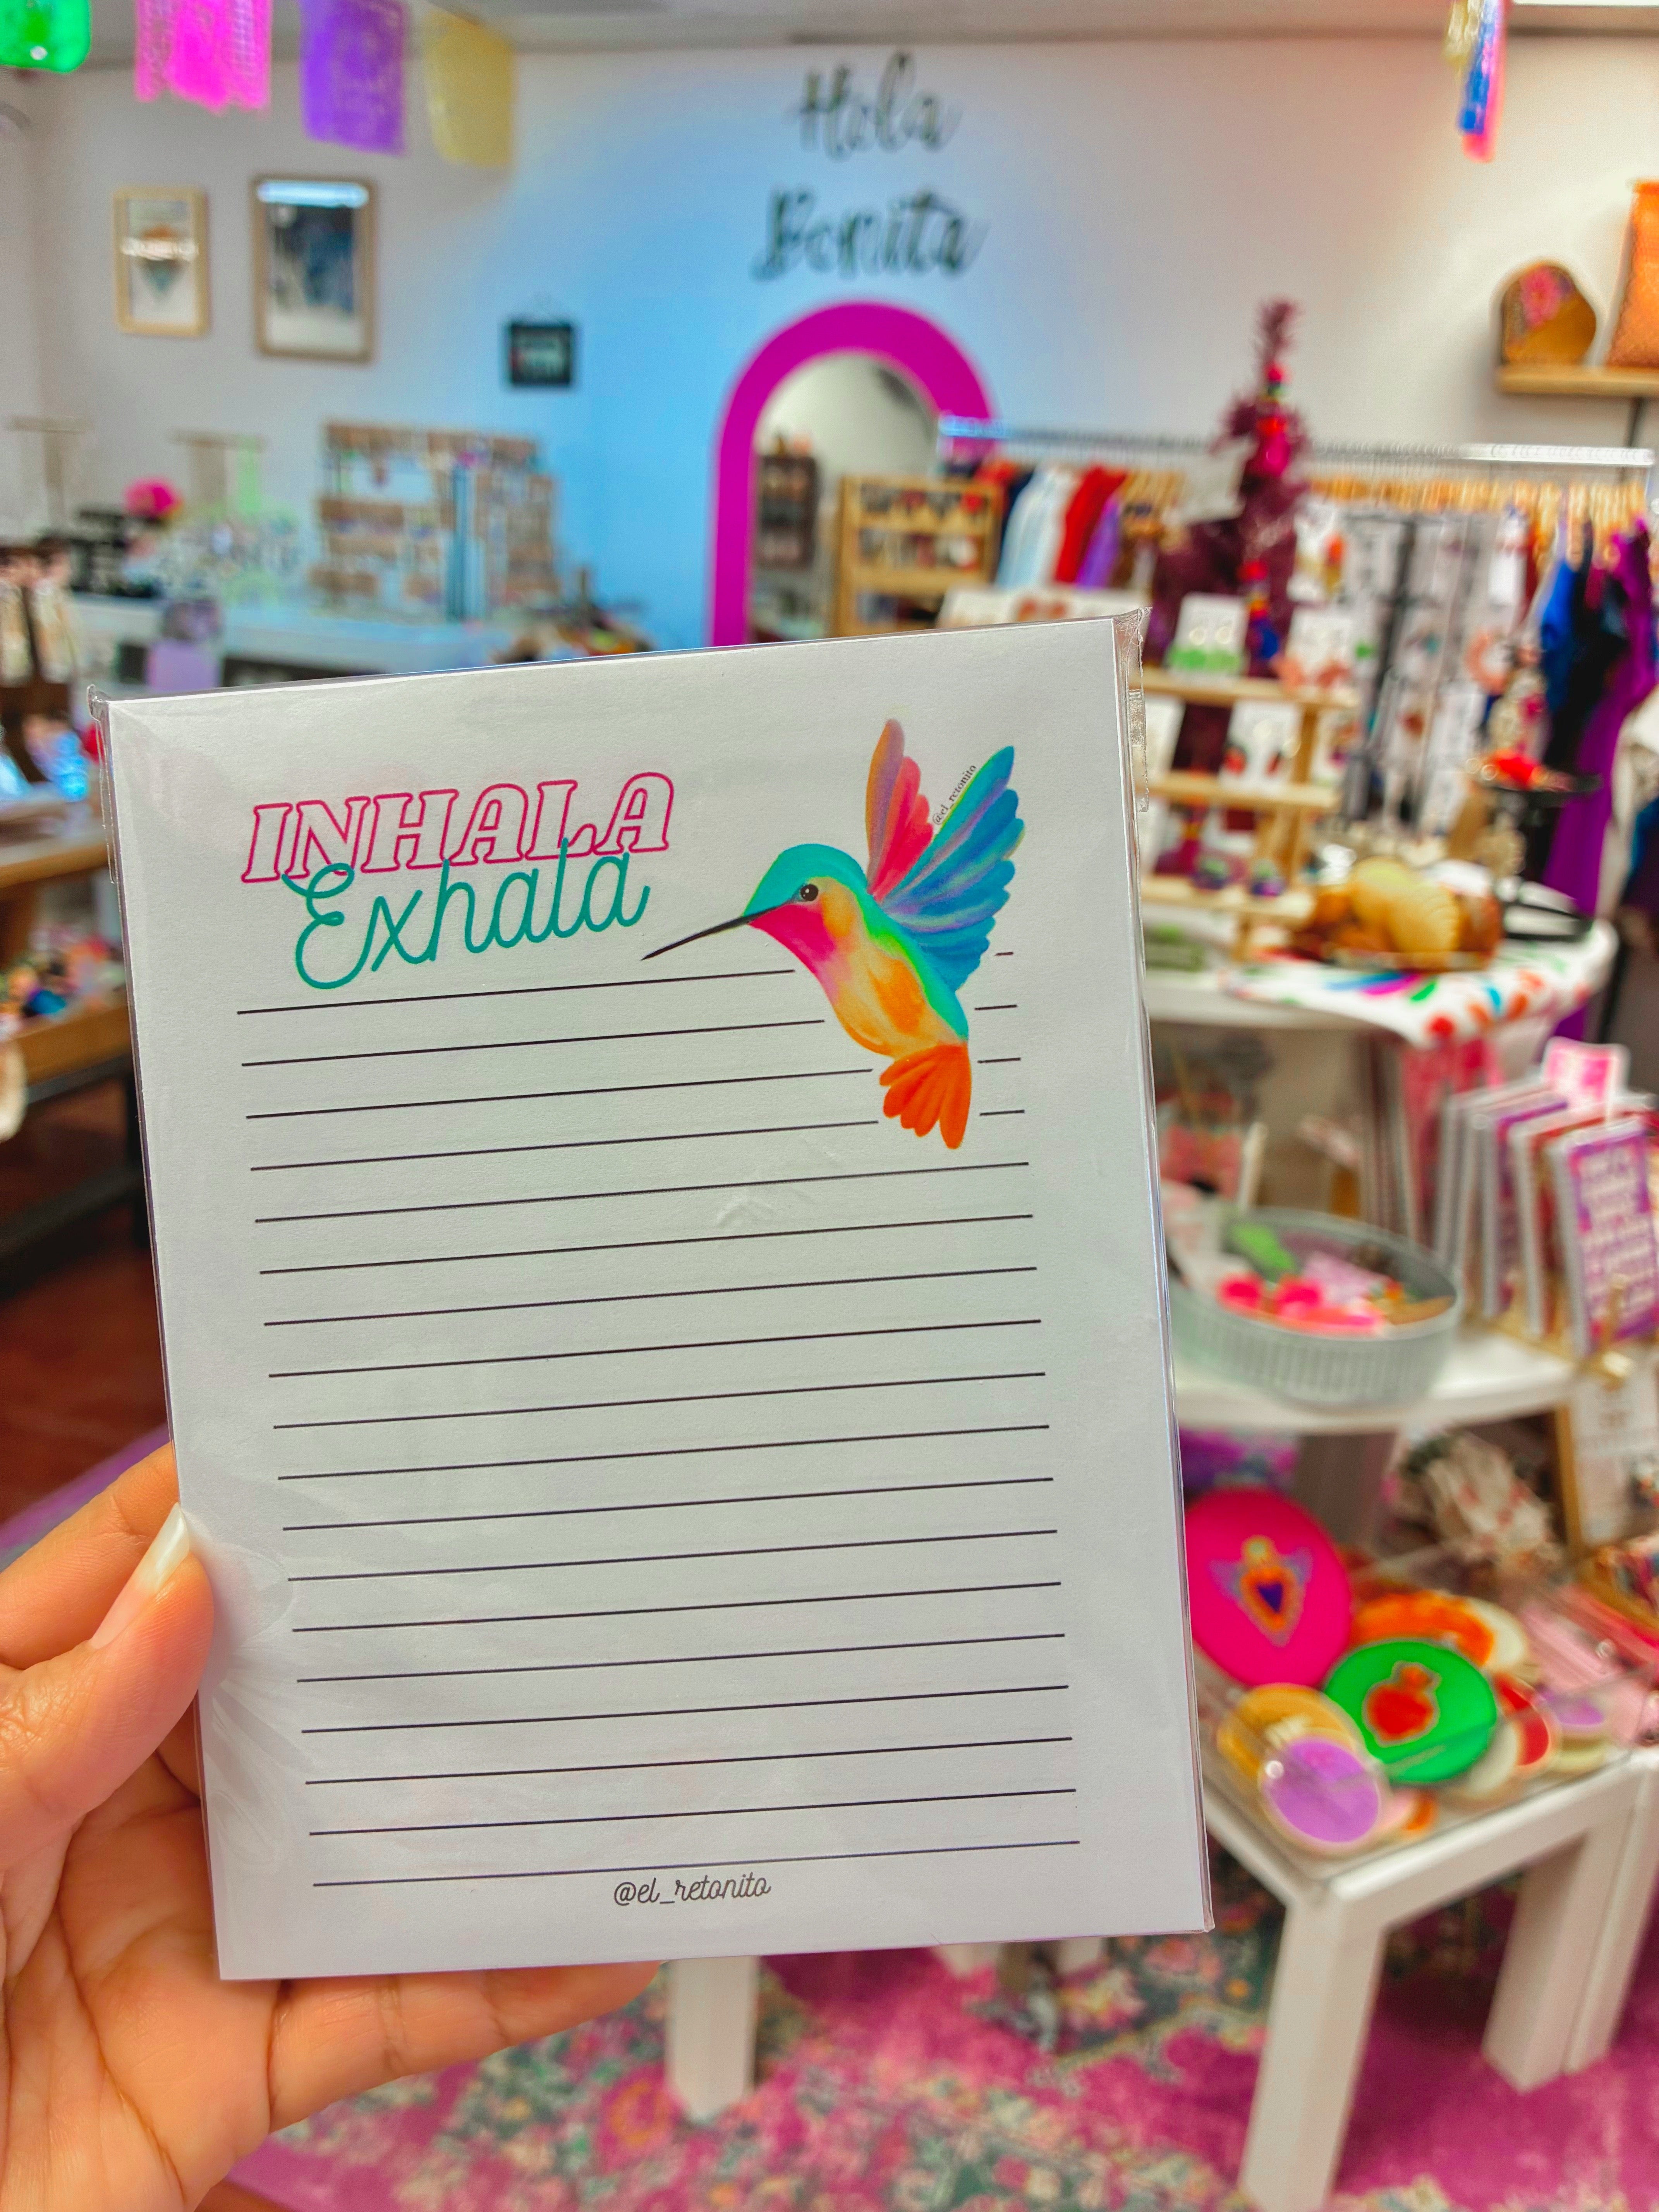 Hola
Bonita
INHALA
Exhala
@el_retonito
@el_retonito